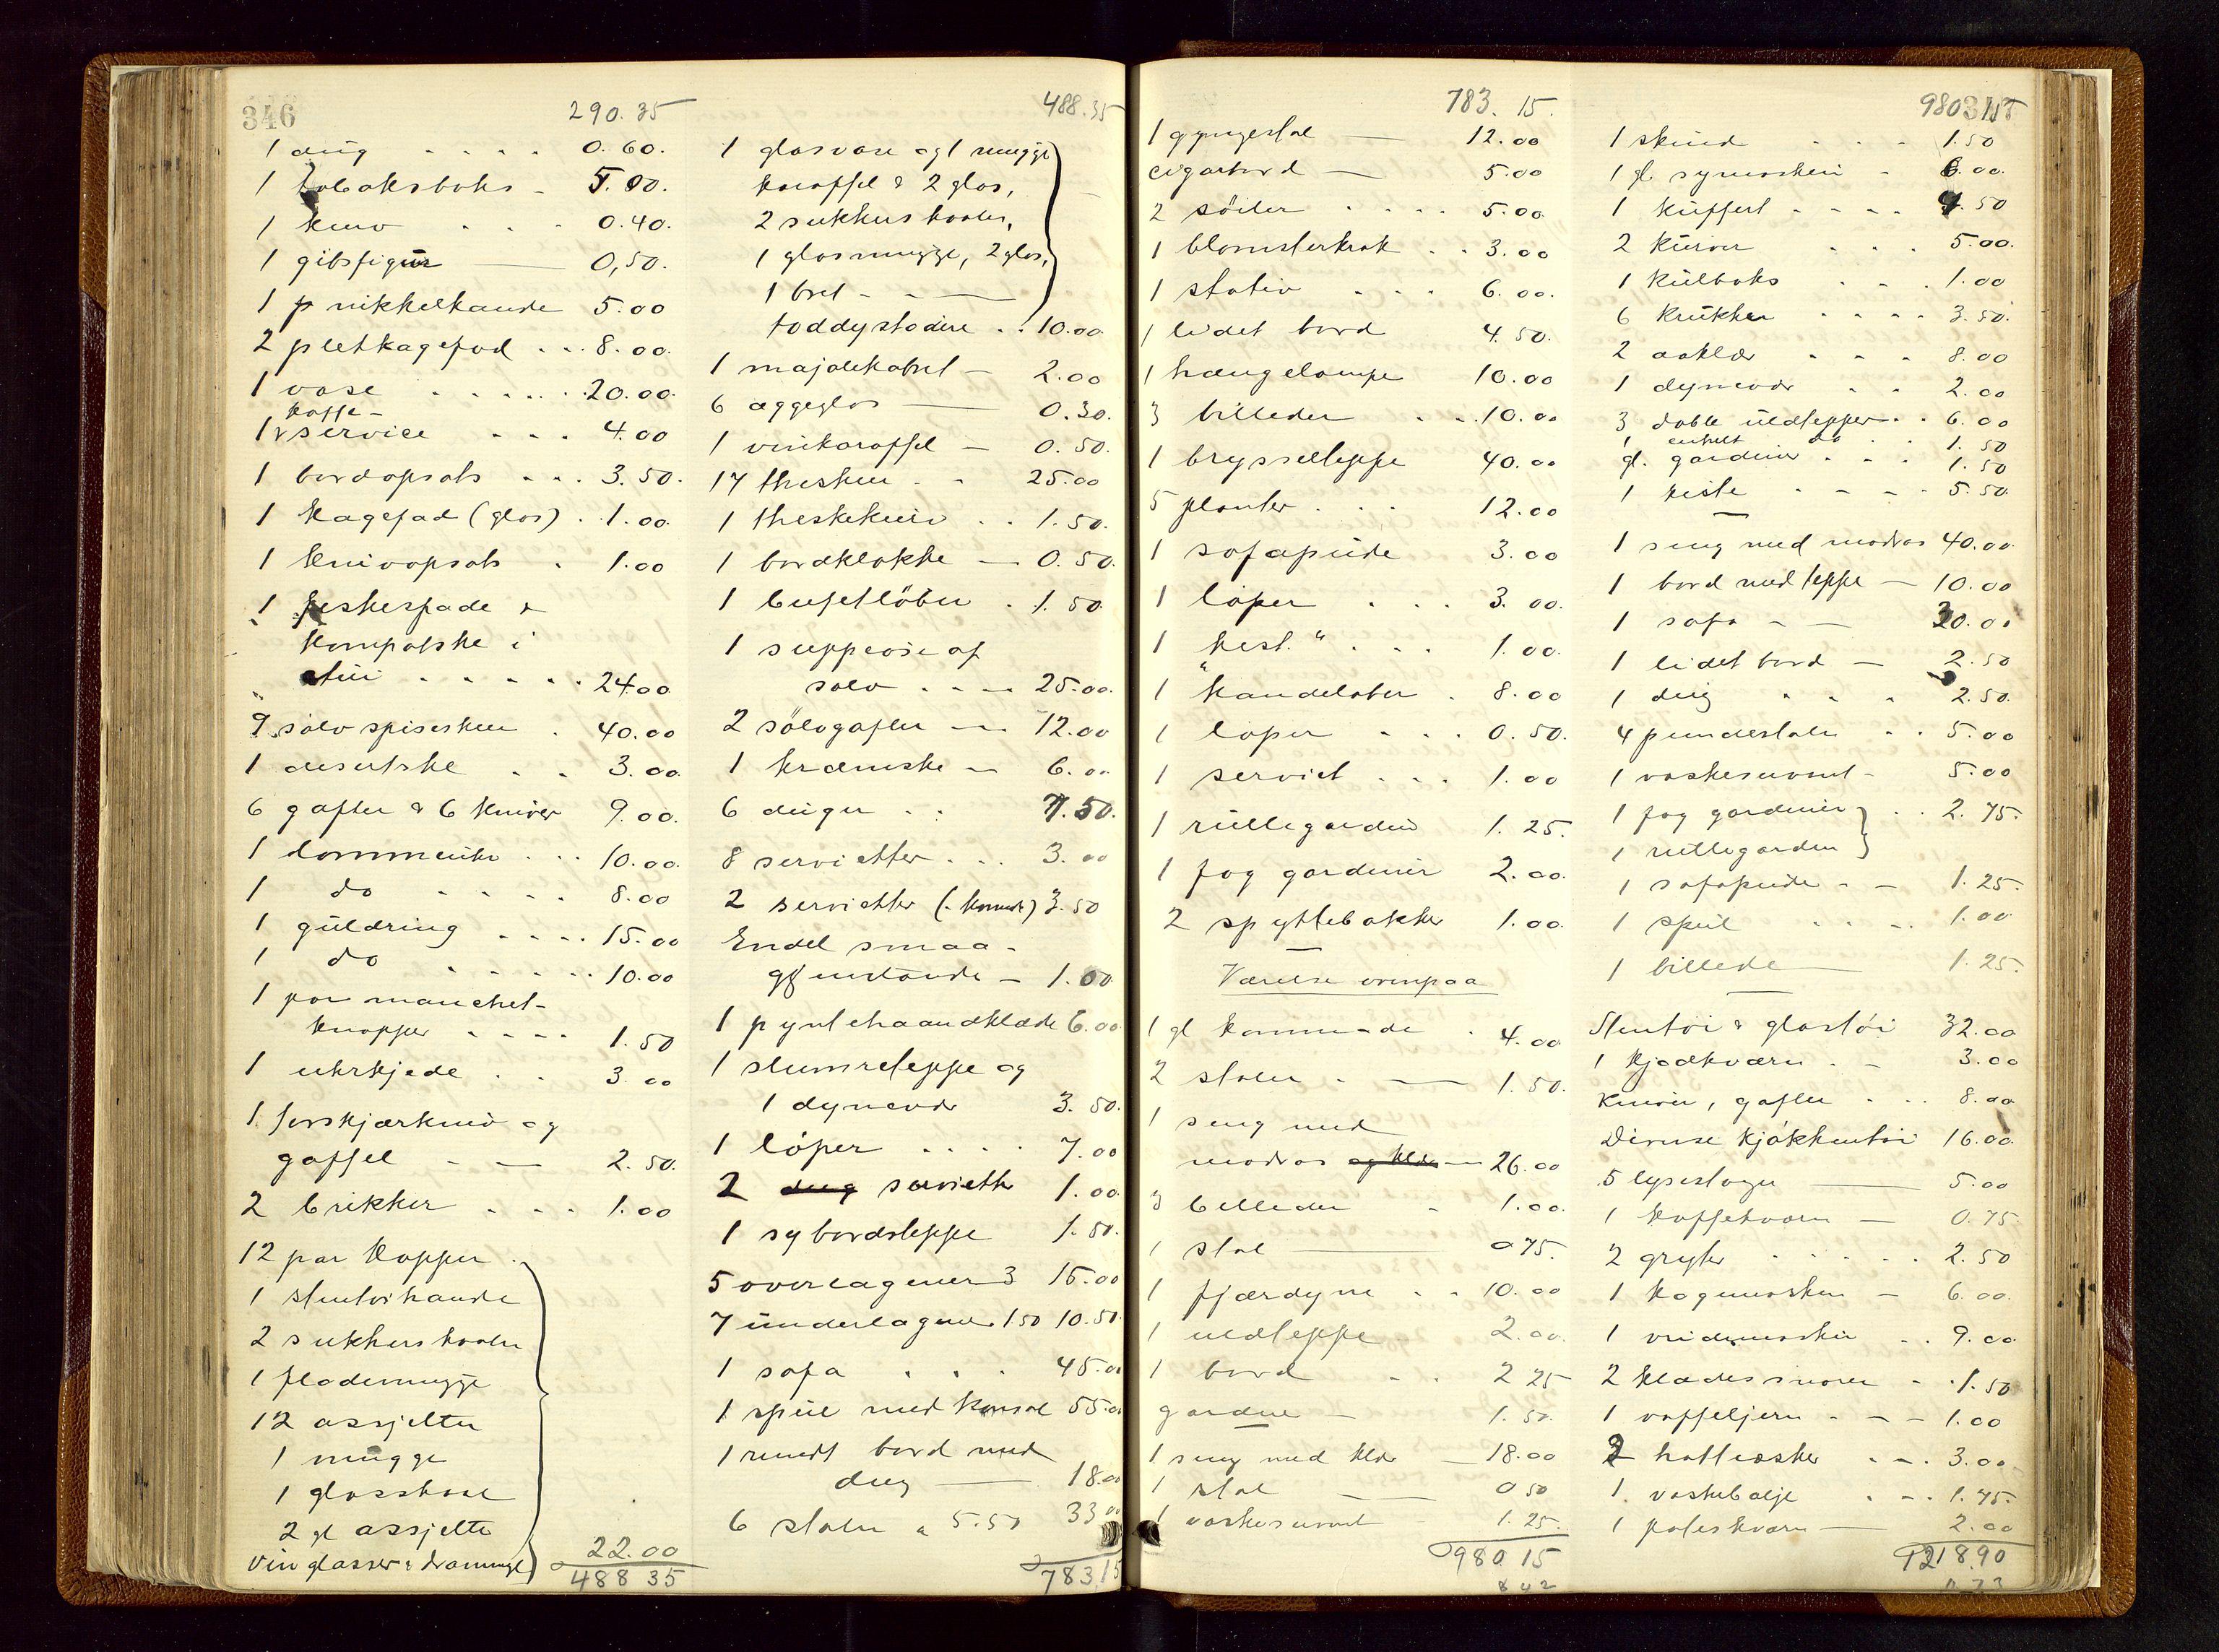 346
290.35
1 dug 0.60.
1 tobaksboks 5.00.
1 kniv 0.40.
1 gibsfigur 0,50.
1 p nikkelkande 5.00
2 pletkagefad 8.00.
1 vase 20.00.
kaffe-
1 service 4.00
1 bordopsats 3.50.
1 kagefad (glas) 1.00.
1 knivopsats 1.00
1 fiskespade &
kompotske i
etui 24.00
9 sølv spiseskeer 40.00
1 desertske 3.00.
6 gafler & 6 kniver 9.00.
1 lommeuhr 10.00.
1 do 8.00
1 guldring 15.00
1 do 10.00
1 par manchet-
knapper 1.50
1 uhrkjede 3.00
1 forskjærkniv og
gaffel 2.50.
2 brikker 1.00
12 par kopper
1 stentøikande
2 sukkerskaaler
1 flødemugge
12 assjetter
1 mugge
1 glasskaal
2 gl assjetter
Vin glasser & 22.00
488 35
488.35
1 glasvase og 1 mugge
karaffel & 2 glas,
2 sukkerskaaler,
1 glasmugge, 2 glas,
1 bret
toddystodere 10.00
1 majolikabret 2.00
6 æggeglas 0.30.
1 vinkaraffel 0.50.
17 theskeer 25.00
1 theskekniv 1.50.
1 bordklokke 0.50.
1 bufetløber 1.50.
1 suppeøse af
sølv 25.00.
2 sølvgafler 12.00
1 kræmske 6.00
6 duger 7.50.
8 servietter 3.00
2 servietter 3.50
Endel smaa-
gjenstande 1.00
1 pyntehaandklæde 6.00
1 slumreteppe og
1 dynevar 3.50.
1 løper 7.00
2 dug servietter 1.00.
1 sybordsteppe 1.50.
5 overlagener 3 15.00
7 underlagener 1.50 10.50.
1 sofa 45.00
1 speil med konsol 55.00
1 rundt bord med
dug 18.00
6 stoler a 5.50 33 00
783.15
783.15.
1 gyngestol 12.00
cigarbord 5.00
2 söiler 5.00
1 blomsterkrak 3.00
1 stativ 6.00.
1 lidet bord 4.50.
1 hængelampe 10.00
3 billeder 10.00
1 brysselteppe 40.00
5 planter 12.00
1 sofapude 3.00
1 løper 3.00.
1 hest. 1.00.
1 kandelaber 8.00
1 løper 0.50.
1 serviet 1.00
1 rullegardin 1.25.
1 fag gardiner 2.00.
2 spyttebakker 1.00.
Værelse ovenpaa
1 gl kommode 4.00
2 stoler 1.50.
1 seng med
madras og klær 26.00
3 billeder 1.00.
1 stol 0 75.
1 fjærdyne 10.00
1 uldteppe 2.00.
1 bord 2 25
gardin 1.50.
1 seng med klær 18.00
1 stol 0 50
1 vaskeservant 1.25.
980.15
842
980.15
1 skind 1.50
1 gl. symaskin 6.00.
1 kuffert 4.50
2 kurver 5.00.
1 kulboks 1.00
6 krukker 3.50.
2 aaklær 8.00
1 dynevar 2.00
3 doble uldtepper 6.00
1 enkelt do 1.50
gl. gardiner 1.50
1 kiste 5.50.
1 seng med madras 40.00.
1 bord med teppe 10.00
1 sofa 30.00
1 lidet bord 2.50
1 dug 2.50.
4 pindestoler 5.00
1 vaskeservant 5.00
1 fag gardiner 2.75.
1 rullegardin
1 sofapude 1.25.
1 speil 1.00
1 billede 1.25.
Stentøi & glastøi 32.00
1 kjødkværn 3.00
Kniver, gafler 8.00
Diverse kjøkkentøi 16.00.
5 lysestager 5.00
1 kaffekværn 0.75.
2 gryter 2.50
1 kogemaskin 6.00.
1 vridemaskin 9.00
2 klædessnorer 1.50
1 vaffeljern 1.00
2 hatteæsker 3.00
1 vaskebalje 1.75.
1 poteskværn 2.00
1218.90